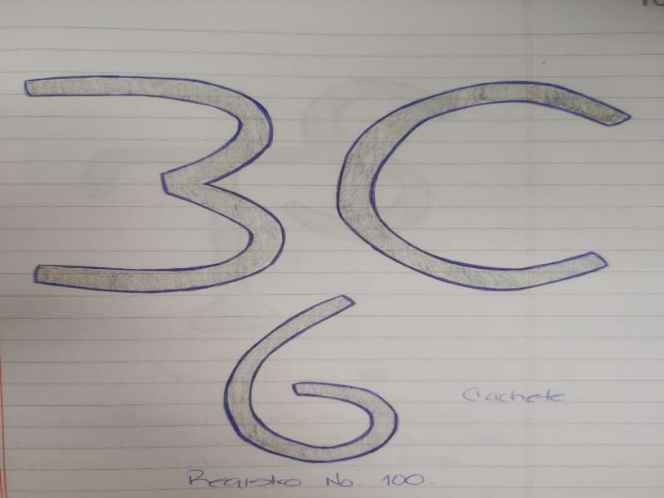 3C
6
Cachete
Registro No. 100.